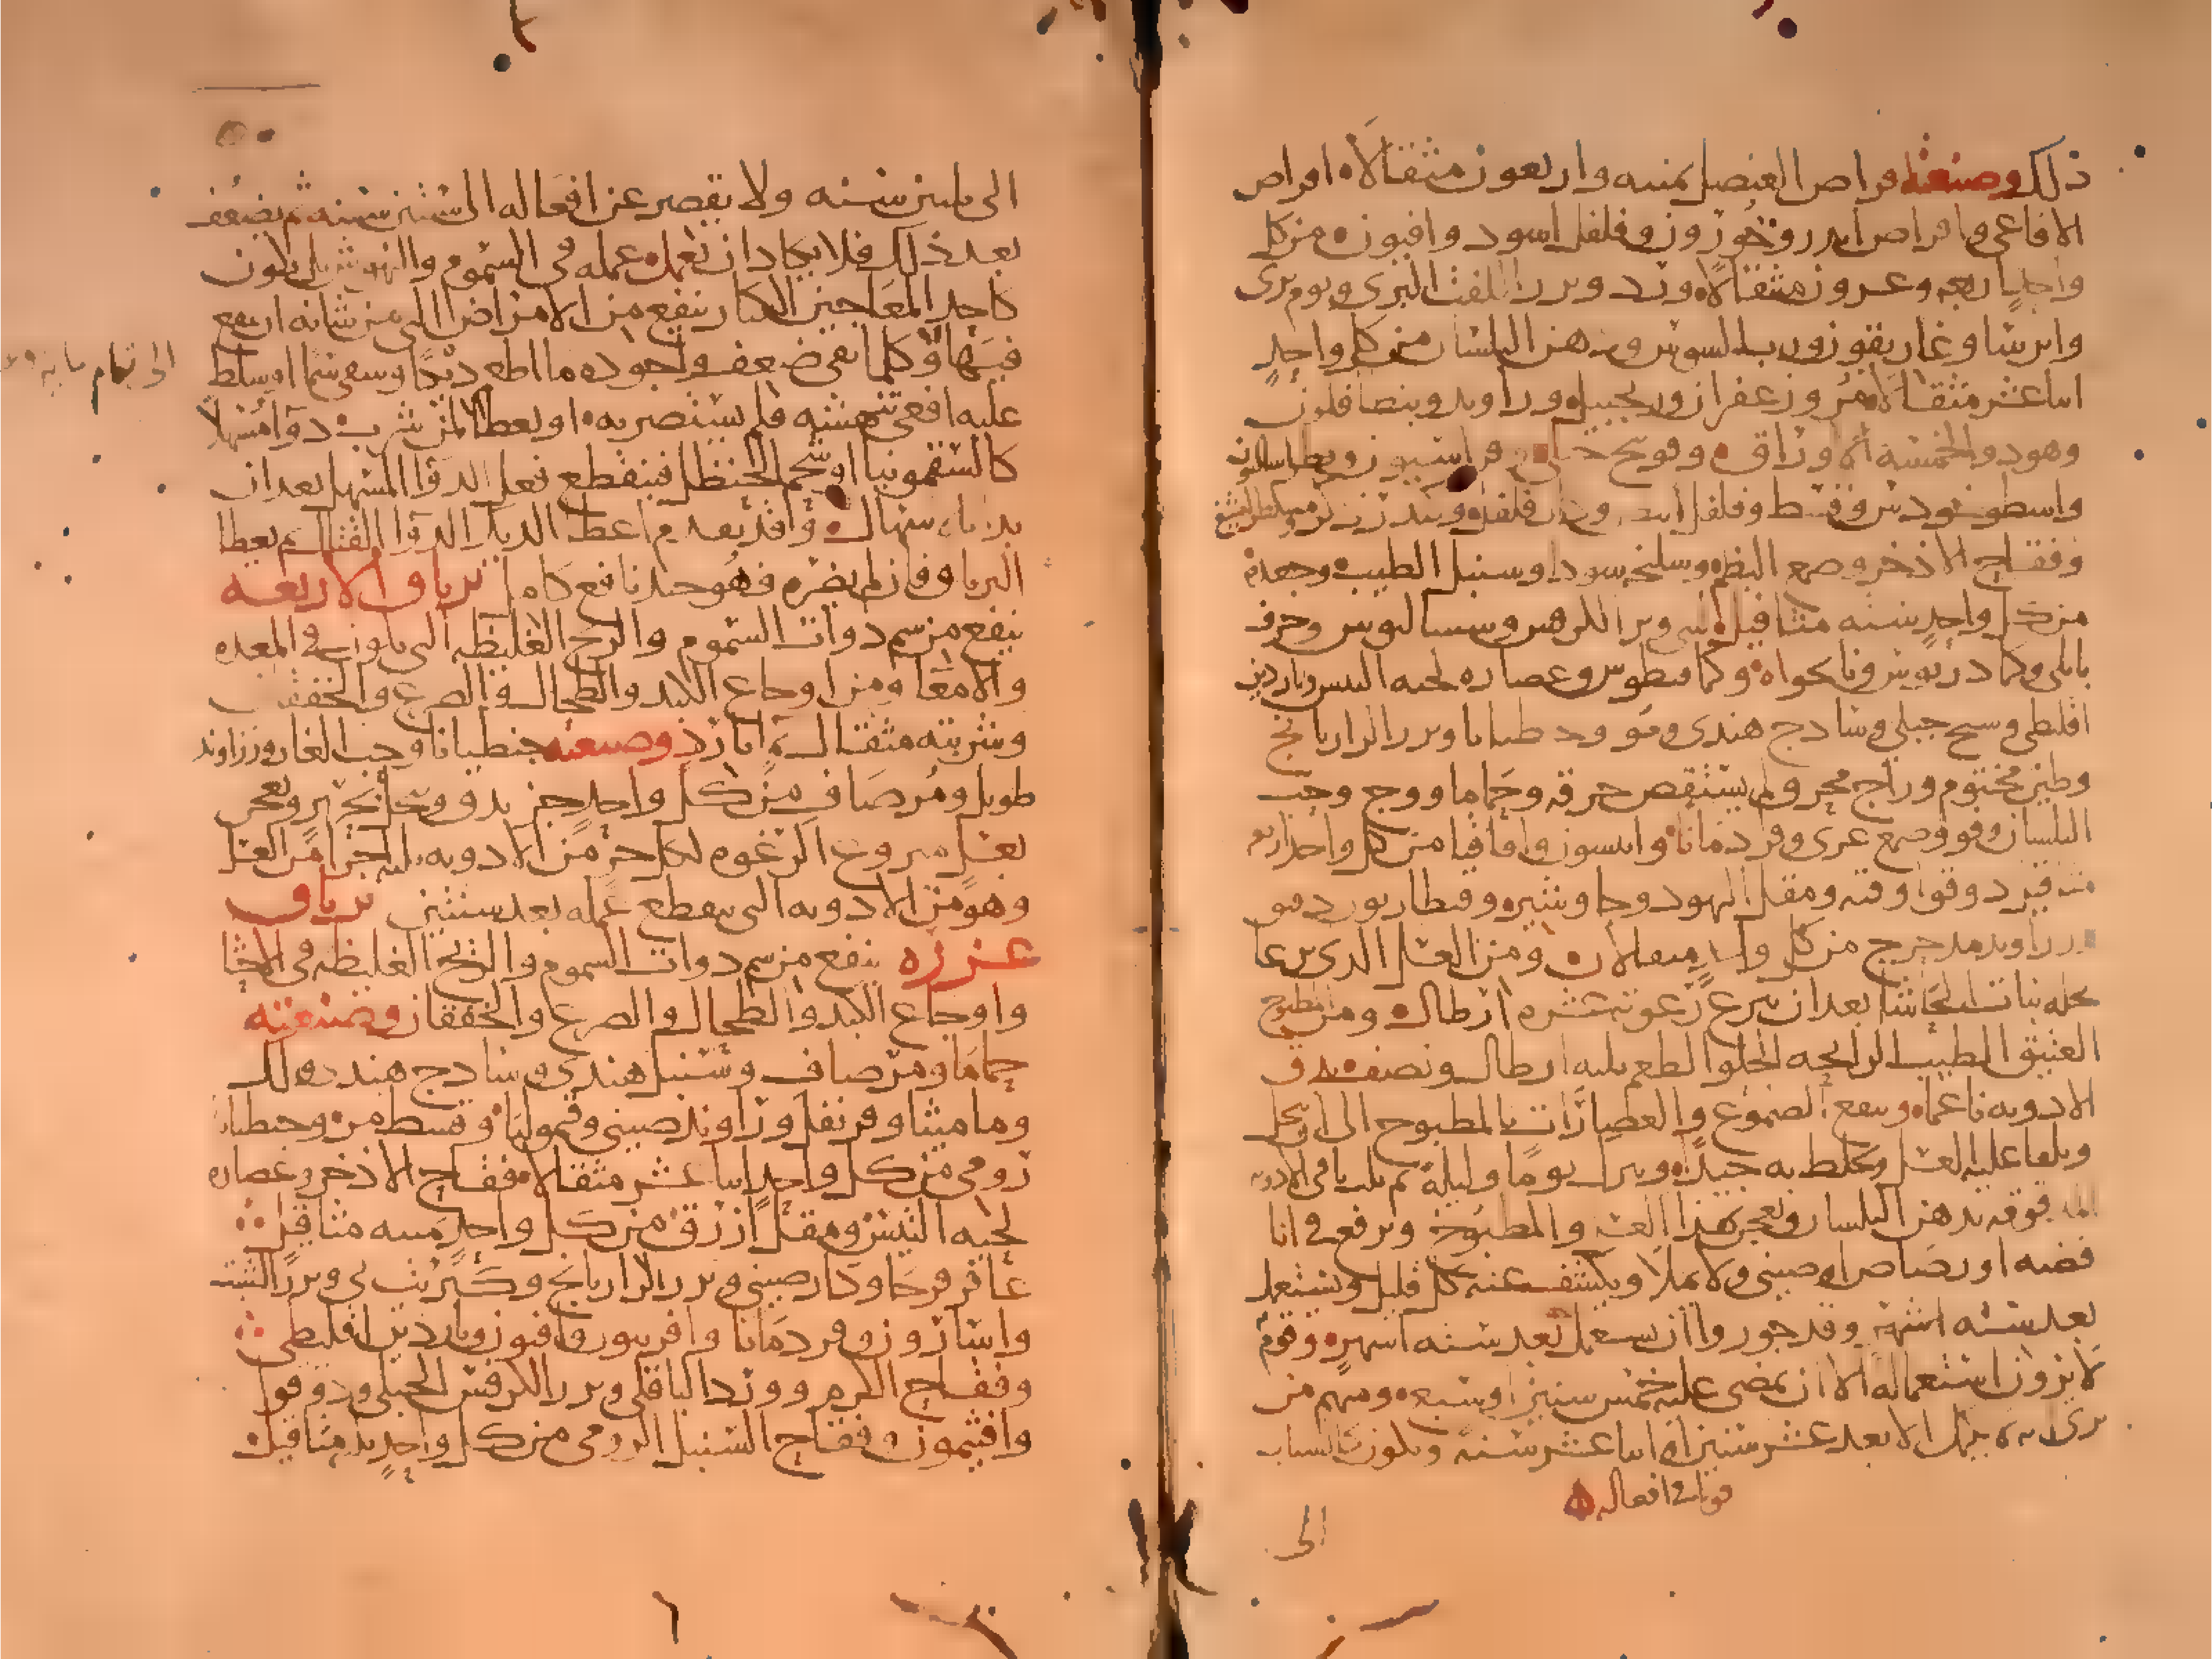 ذلك وصنعته اقراص العنصل ثمنيه واربعون مثقالا اقراص
الافاعى واقراص اندروخورون وفلفل اسود وافيون من كل
واحد اربعه وعشرون مثقالا وورد وبزر اللفت البرى وثوم برى
وايرسا وغاريقون ورب السوس ودهن البلسان من كل واحد
اثنا عشر مثقالا مر وزعفران وزنجبيل وراوند وبنطافلون
وفوذنج جبلى وفراسيون وبطراساليون
واسطوخودس وقسط وفلفل ابيض ودار فلفل
وفقاح الاذخر وصمغ البطم وسليخه سودا وسنبل الطيب وجعده
من كل واحد سته مثاقيل وبزر الكرفس وسيساليوس وحرف
بابلى وكمادريوس ونانخواه وكمافيطوس وعصاره لحيه التيس وناردين
اقليطى وسادج هندى ومو وجنطيانا وبزر الرازيانج
وطين مختوم وزاج محرق ولم يستقص حرقه وحماما ووج وحب
البلسان وفو وصمغ عربى وقردمانا وانيسون واقاقيا من كل واحد اربعه
مثاقيل دوقوا وقنه ومقل اليهود وجاوشير وقنطاريون دقيق
وزراوند مدحرج من كل واحد مثقالان ومن العسل الذى يرعا
نحله نبات الحاشا بعد ان ينزع رغوته عشره ارطال ومن المطبوخ
العتيق الطيب الرائحه الحلوا الطعم ثلثه ارطال ونصف يدق
الادويه ناعما وينقع الصموغ والعصارات بالمطبوخ الى ان ينحل
ويلقا عليه العسل ويخلط به جيدا ويترك يوما وليله ثم يلت باقى الادويه
المدقوقه بدهن البلسان ويعجن بهذا العسل والمطبوخ ويرفع فى انا
فضه او رصاص او صينى ولا يملا ويكشف عنه كل قليل ويستعمل
بعد سته اشهر وقد جوزوا ان يستعمل بعد سته اشهر وقوم
لا يرون استعماله الا ان يمضى عليه خمس سنين او سبعه ومنهم من
يرى الا بعد عشر سنين او اثنا عشر سنه ويكون كالشباب
قوتا وافعاله
الى
الى ثلثين سنه ولا يقصر عن افعاله الى ستين سنه ثم يضعف
بعد ذلك فلا يكاد ان يعمل عمله فى السموم والنهوش بل يكون
كاحد المعاجين الكبار ينفع من الامراض التى من شانه ان ينفع
فيها وكلما بقى ضعف واجوده ما اطعم ديكا وسقى سما او سلط
عليه افعى تنهشه فلم يستضر به او يعطا لمن شرب دوآ مسهلا
كالسقمونيا او شحم الحنظل فينقطع فعل الدوآ المسهل بعد ان
الدوآ القتال ثم يعطا
الترياق فان لم يضره فهو جيد نافع كامل ترياق الاربعه
ينفع من سم دوات السموم والريح الغليظه التى تكون فى المعده
والامعا ومن اوجاع الكبد والطحال والصرع والخفقان
وشربته مثقال بما بارد وصنعته جنطيانا وحب الغار وزراوند
طويل ومر صاف من كل واحد جز يدق وينخل بحرير ويعجن
بعسل منزوع الرغوه لكل جز من الادويه ثلثه اجزا من العسل
وهو من الادويه التى ينقطع عمله بعد سنتين ترياق
عزره ينفع من سم دوات السموم والريح الغليظه فى الاحشا
واوجاع الكبد والطحال والصرع والخفقان وصنعته
حماما ومر صاف وسنبل هندى وسادج هندى ولك
وماميثا وقرنفل وزاوند صينى وقموليا وقسط مر وجنطيانا
رومى من كل واحد اثنا عشر مثقالا فقاح الاذخر وعصاره
لحيه التيس ومقل ازرق من كل واحد ثمنيه مثاقيل
عاقر قرحا ودار صينى وبزر الرازيانج وكبريت وبزر الشبت
واسارون وقردمانا وافربيون وافيون وناردين اقليطى
وفقاح الكرم وورد الباقلى وبزر الكرفس الجبلى ودوقوا
وافثيمون وفقاح السنبل الرومى من كل واحد ثلثه مثاقيل
الى تمام مايه